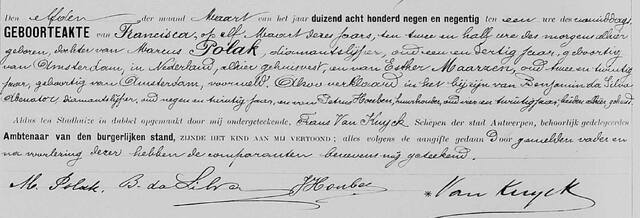 Den elfden der maand Maart van het jaar duizend acht honderd negen en negentig ten een ure des namiddags,
GEBOORTEAKTE van Francisca, op elf Maart dezes jaars, ten twee en half ure des morgens alhier
geboren, dochter van Marcus Polak, diamantslijper, oud een en dertig jaar, geboortig
van Amsterdam, in Nederland, alhier gehuisvest, en van Esther Maarzen, oud twee en twintig
jaar, geboortig van Amsterdam, voormeld. Alzoo verklaard in het bijzijn van Benjamin da Silva
diamantslijper, oud negen en twintig jaar, en van Petrus Houben, huurhouder, oud vier en twintig jaar, beiden alhier gehuisd.
Aldus ten Stadhuize in dubbel opgemaakt door mij ondergeteekende, Frans Van Kuyck, Schepen der stad Antwerpen, behoorlijk gedelegeerden
Ambtenaar van den burgerlijken stand, ZIJNDE HET KIND AAN MIJ VERTOOND; alles volgens de aangifte gedaan door gemelden vader en
na voorlezing dezer hebben de comparanten benevens mij geteekend.
M. Polak. B. da Silva J Houben Van Kuyck